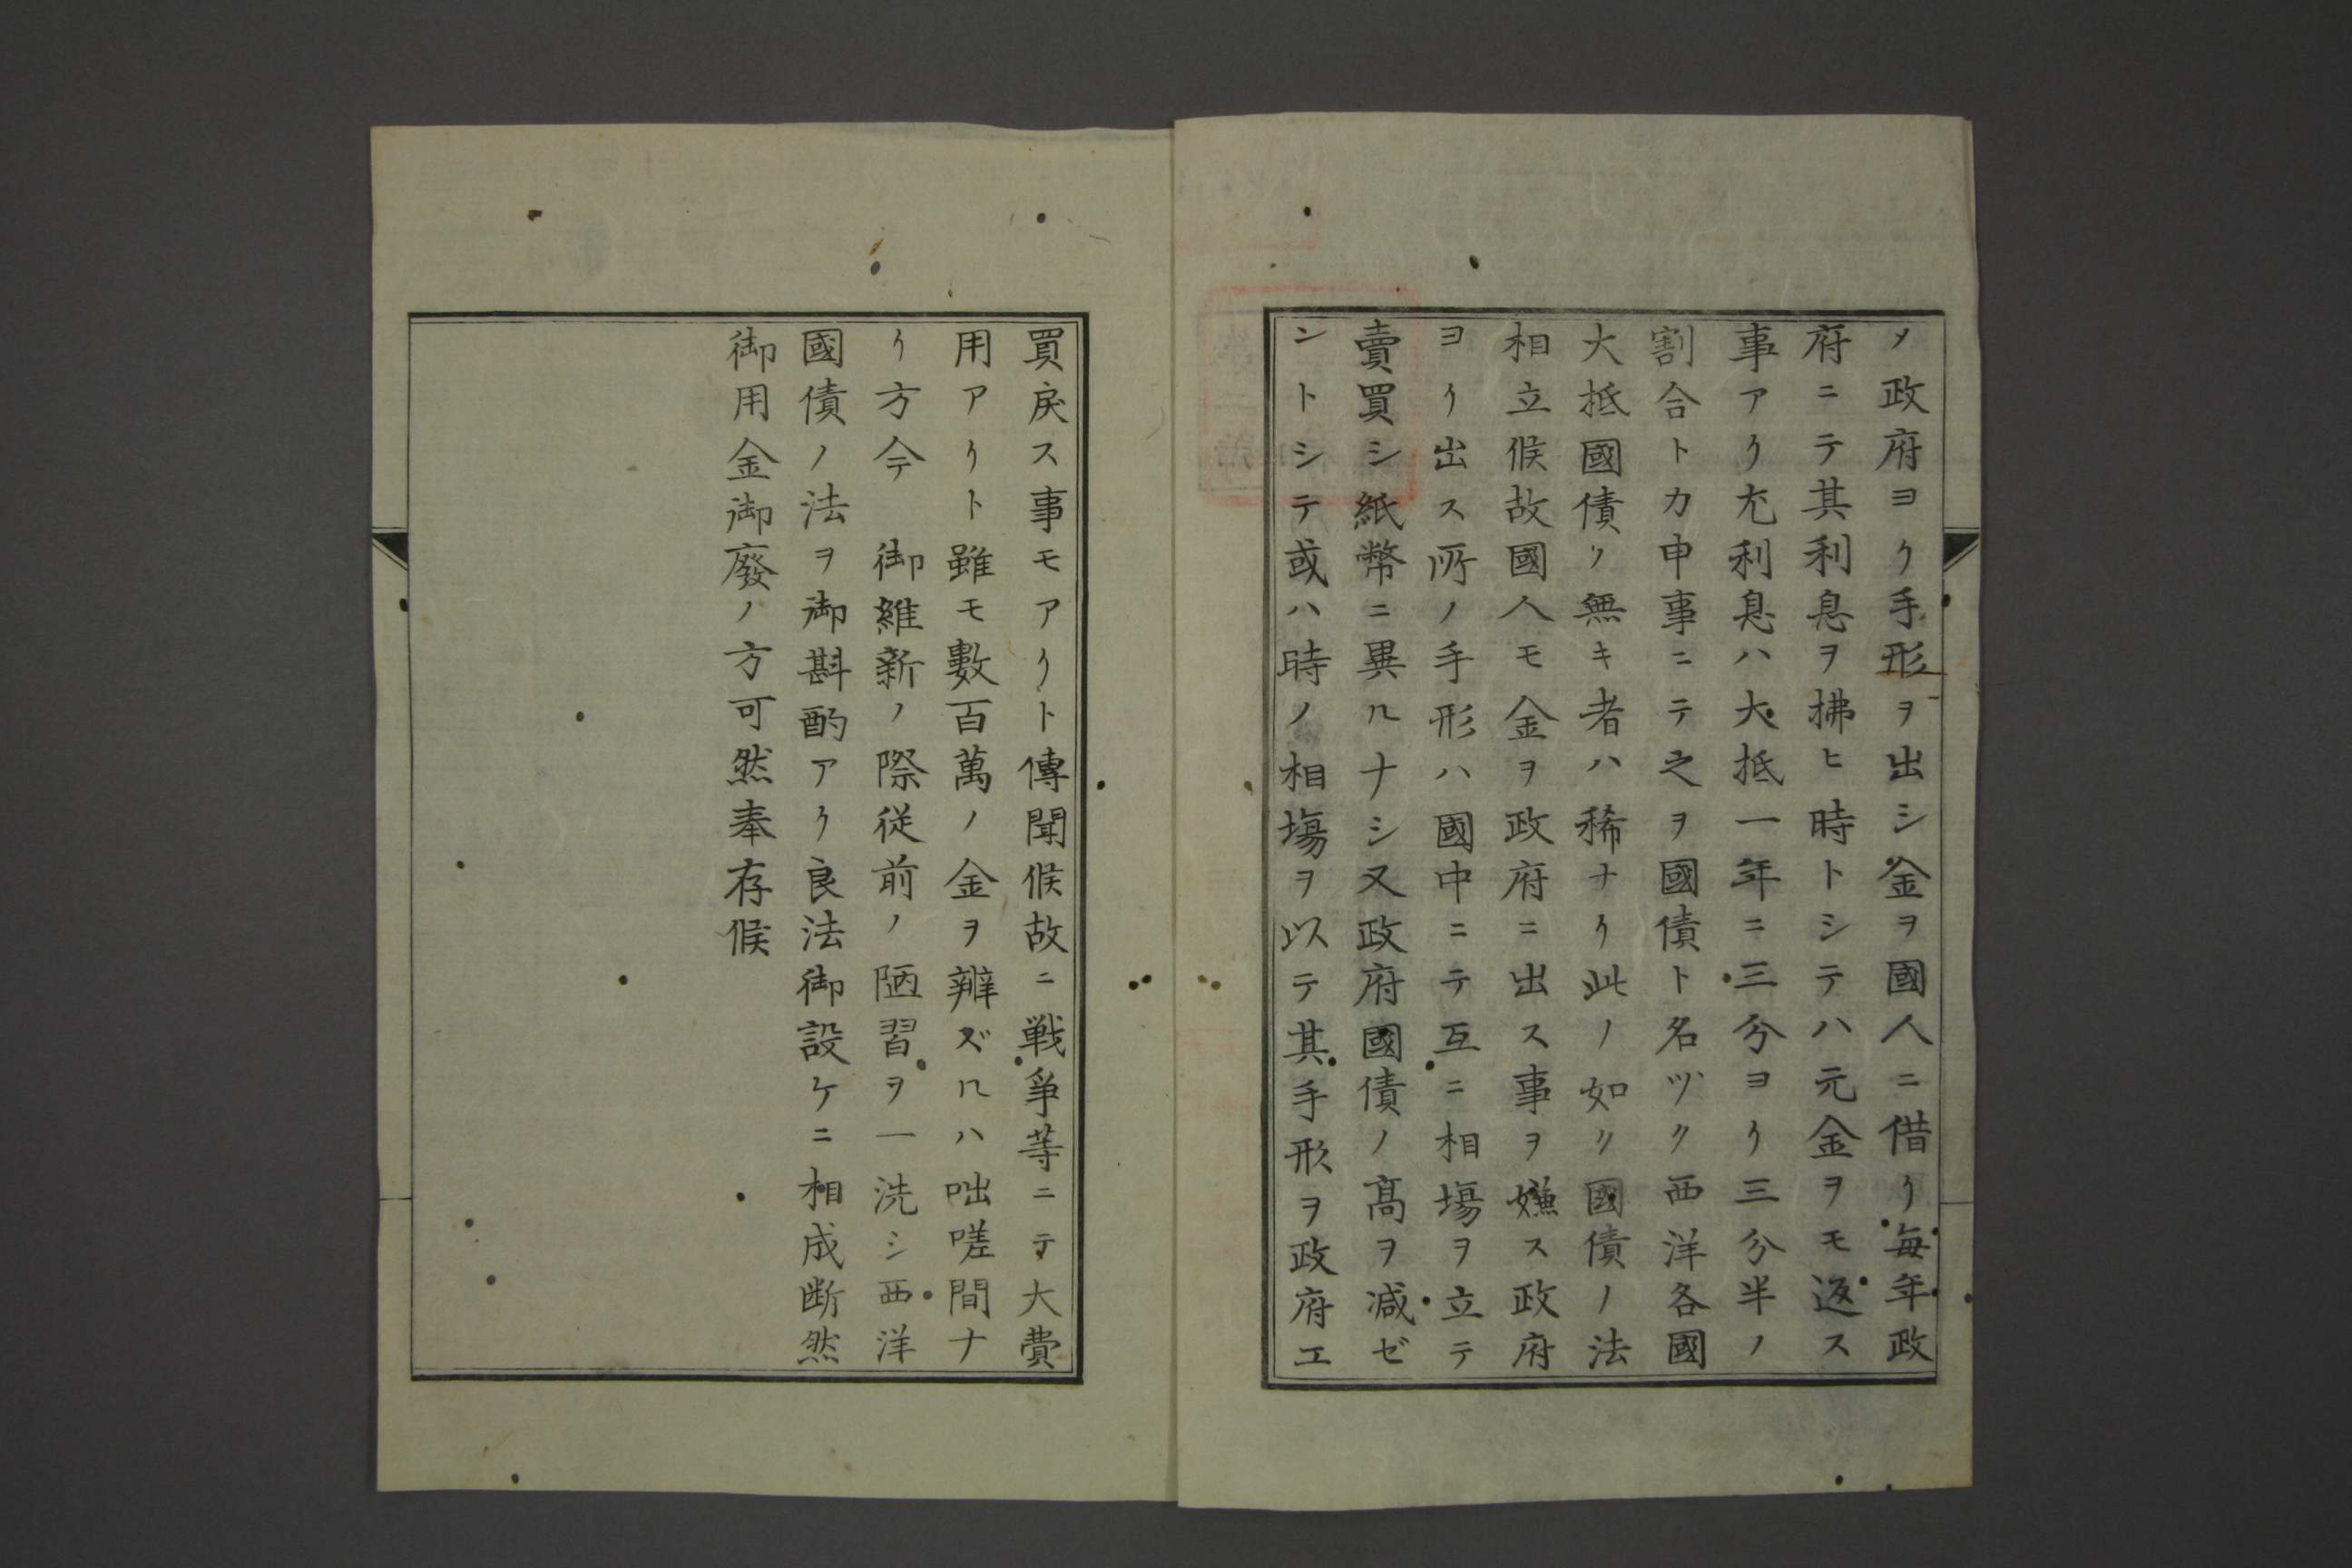 メ政府ヨリ手形ヲ出シ金ヲ國人ニ借リ毎年政
府ニテ其利息ヲ拂ヒ時トシテハ元金ヲモ返ス
事アリ尤利息ハ大抵一年ニ三分ヨリ三分半ノ
割合トカ申事ニテ之ヲ國債ト名ヅク西洋各國
大抵國債ノ無キ者ハ稀ナリ此ノ如ク國債ノ法
相立候故國人モ金ヲ政府ニ出ス事ヲ嫌ス政府
ヨリ出ス所ノ手形ハ國中ニテ互ニ相塲ヲ立テ
賣買シ紙幣ニ異ルナシ又政府國債ノ高ヲ減ゼ
ントシテ或ハ時ノ相塲ヲ以テ其手形ヲ政府エ
買戻ス事モアリト傳聞候故ニ戦爭等ニテ大費
用アリト雖モ數百萬ノ金ヲ辨ズルハ咄嗟間ナ
リ方今 御維新ノ際従前ノ陋習ヲ一洗シ西洋
國債ノ法ヲ御斟酌アリ良法御設ケニ相成断然
御用金御廢ノ方可然奉存候